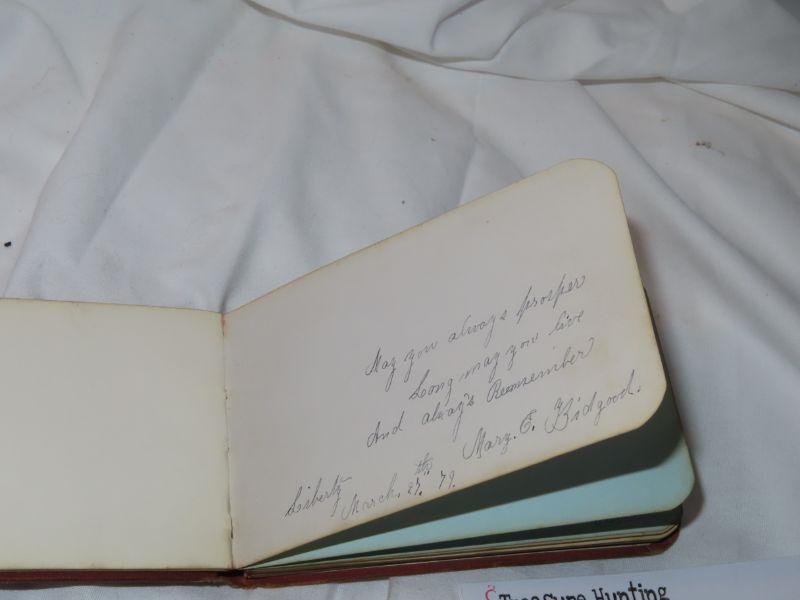 May you always prosper
Long may you live
And always Remember
Mary. E. Bidgood.
Liberty
March. 27.th 79.
Treasure Hunting